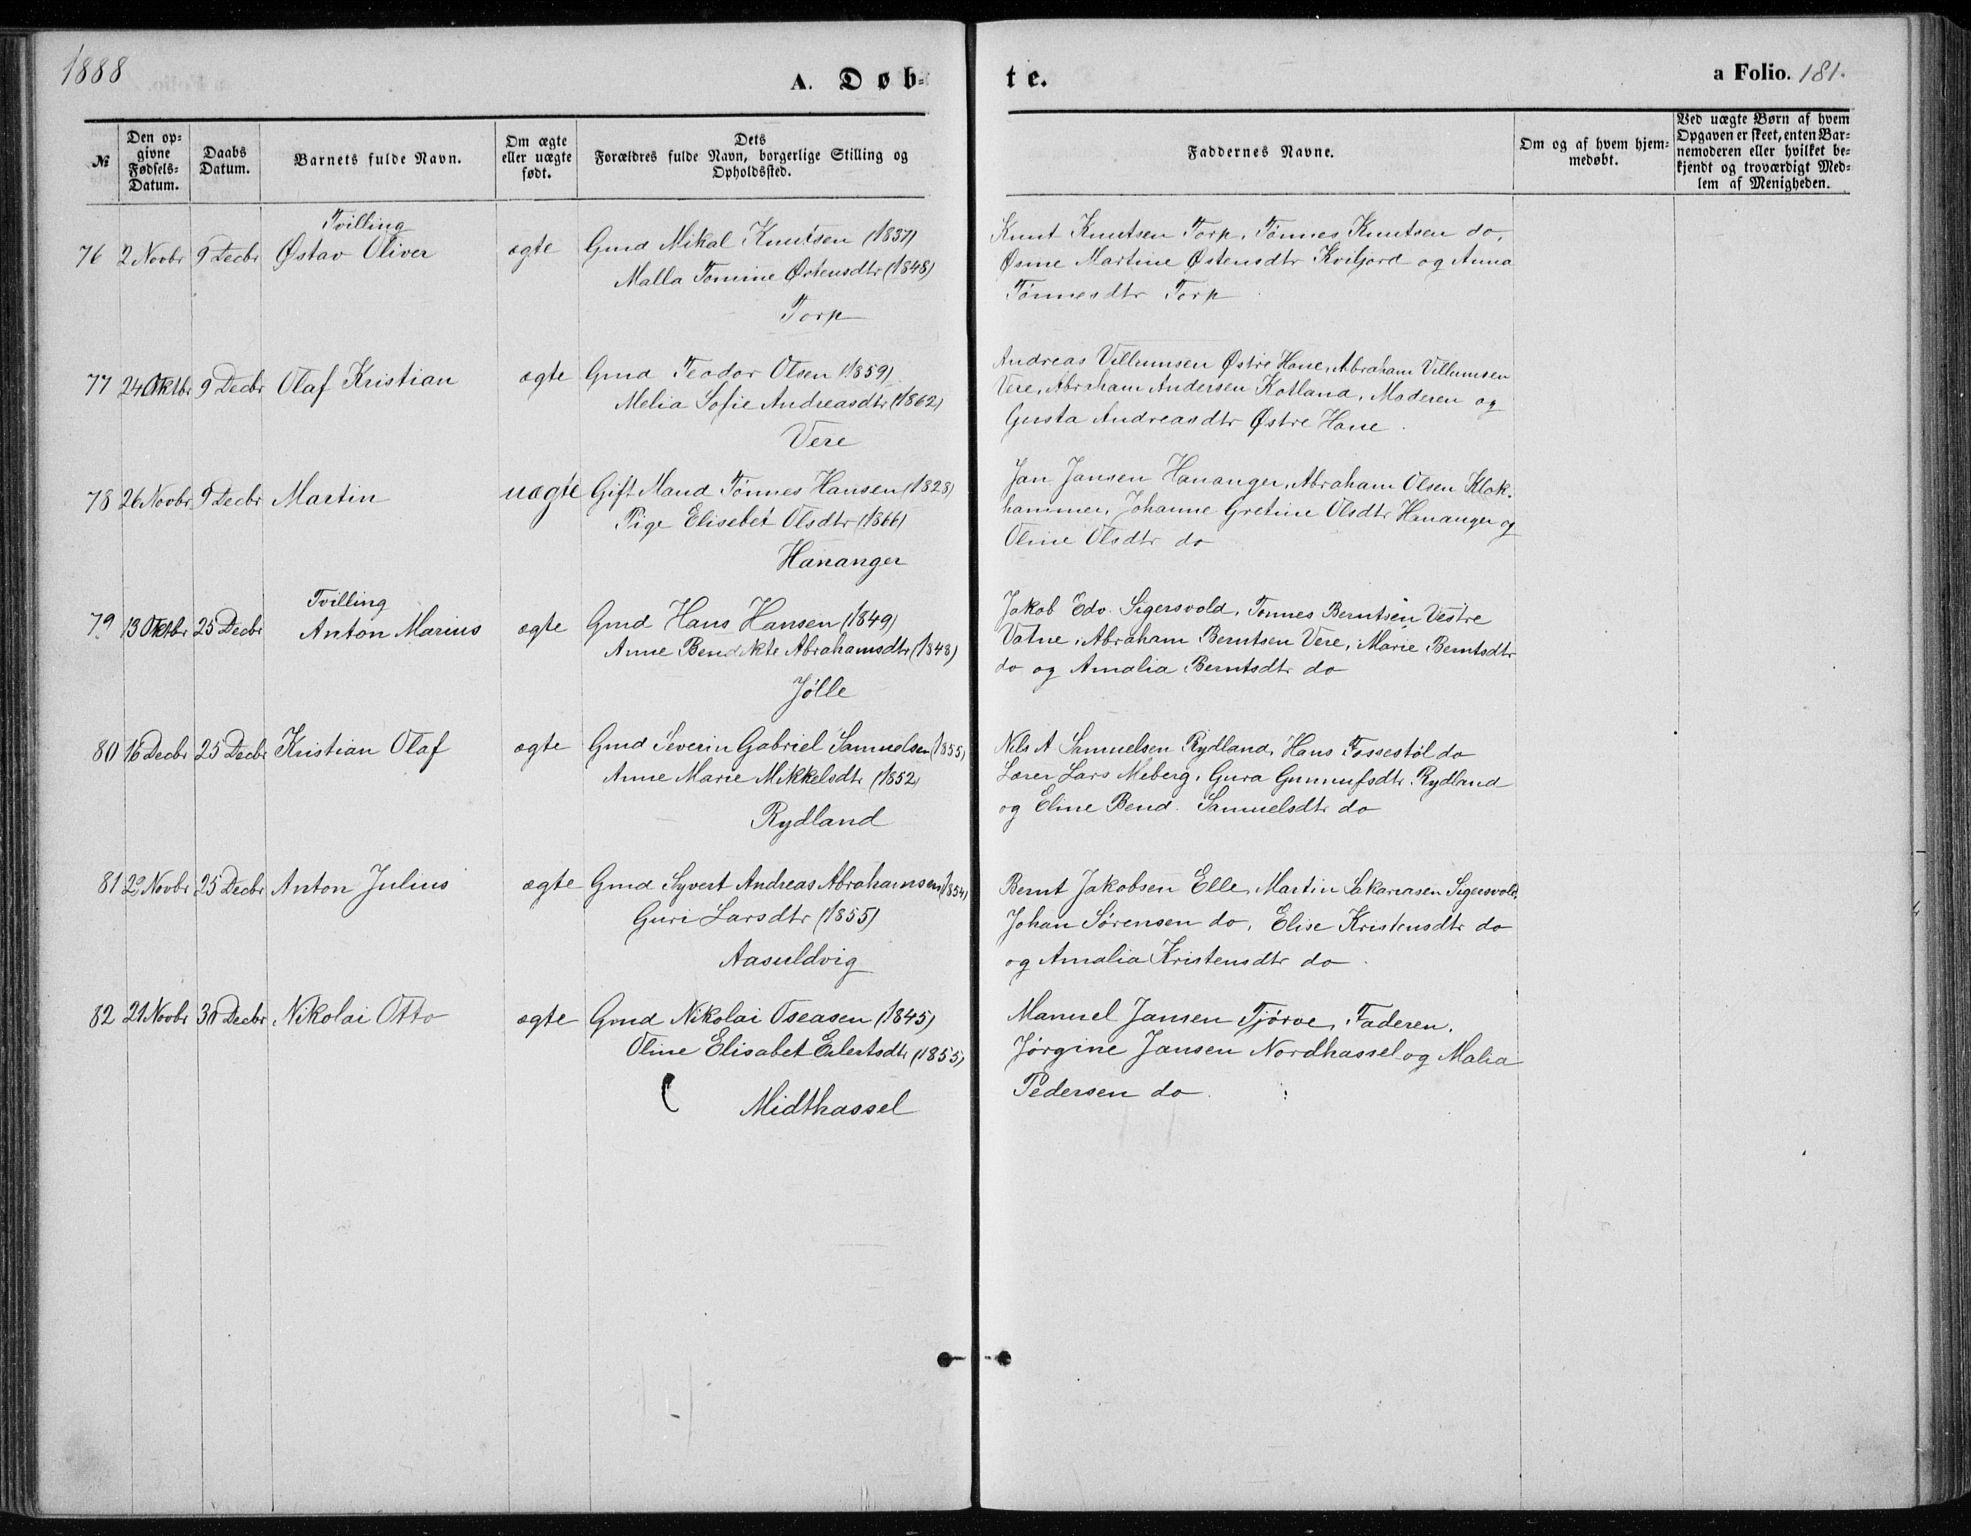 1888
A. Døb-
te.
a Folio. 181.
№
Den opgivne Fødsels-Datum.
Daabs Datum.
Barnets fulde Navn.
Om ægte eller uægte født.
Dets Forældres fulde Navn, borgerlige Stilling og Opholdssted.
Faddernes Navne.
Om og af hvem hjemmedøbt.
Ved uægte Børn af hvem Opgaven er skeet, enten Barnemoderen eller hvilket bekjendt og troværdigt Medlem af Menigheden.
Tvilling
76 2 Novbr 9 Decbr Østav Oliver ægte Gmd Mikal Knutsen (1837)
Malla Tomine Østensdtr (1848)
Torp
Knut Knutsen Torp, Tønnes Knutsen do,
Osme Martine Østensdtr Kviljord og Anna
Tønnesdtr Torp
77 24 Oktbr 9 Decbr Olaf Kristian ægte Gmd Teodor Olsen (1859)
Melia Sofie Andreasdtr (1862)
Vere
Andreas Villumsen Østre Hane, Abraham Villumsen
Vere, Abraham Andersen Kotland, Moderen og
Gusta Andreasdtr Østre Hane.
78 26 Novbr 9 Decbr Martin uægte Gift Mand Tønnes Hansen (1828)
Pige Elisebet Olsdtr (1866)
Hananger
Jan Jansen Hananger, Abraham Olsen Klok-
hammer, Johanne Gretine Olsdtr Hananger og
Oline Olsdtr do
Tvilling
79 13 Oktbr 25 Decbr Anton Marius ægte Gmd Hans Hansen (1849)
Anne Bendikte Abrahamsdtr (1848)
Jølle
Jakob Edv. Sigersvold, Tønnes Berntsen Vestre
Vatne, Abraham Berntsen Vere, Marie Berntsdtr
do og Amalia Berntsdtr do
80 16 Decbr 25 Decbr Kristian Olaf ægte Gmd Severin Gabriel Samuelsen (1855)
Anne Marie Mikkelsdtr (1852)
Rydland
Nils A Samuelsen Rydland, Hans Fossestøl do
Lærer Lars Meberg, Gura Gunnufsdtr Rydland
og Eline Bend. Samuelsdtr do
81 29 Novbr 25 Decbr Anton Julius ægte Gmd Syvert Andreas Abrahamsen (1854)
Guri Larsdtr (1855)
Aasuldvig
Bernt Jakobsen Elle, Martin Sakariasen Sigersvold,
Johan Sørensen do, Elise Kristensdtr do
og Amalia Kristensdtr do.
82 21 Novbr 30 Decbr Nikolai Otto ægte Gmd Nikolai Oseasen (1845)
Oline Elisabet Eilertsdtr (1855)
Midthassel
Manuel Jansen Tjørve, Faderen,
Jørgine Jansen Nordhassel og Malia
Pedersen do.